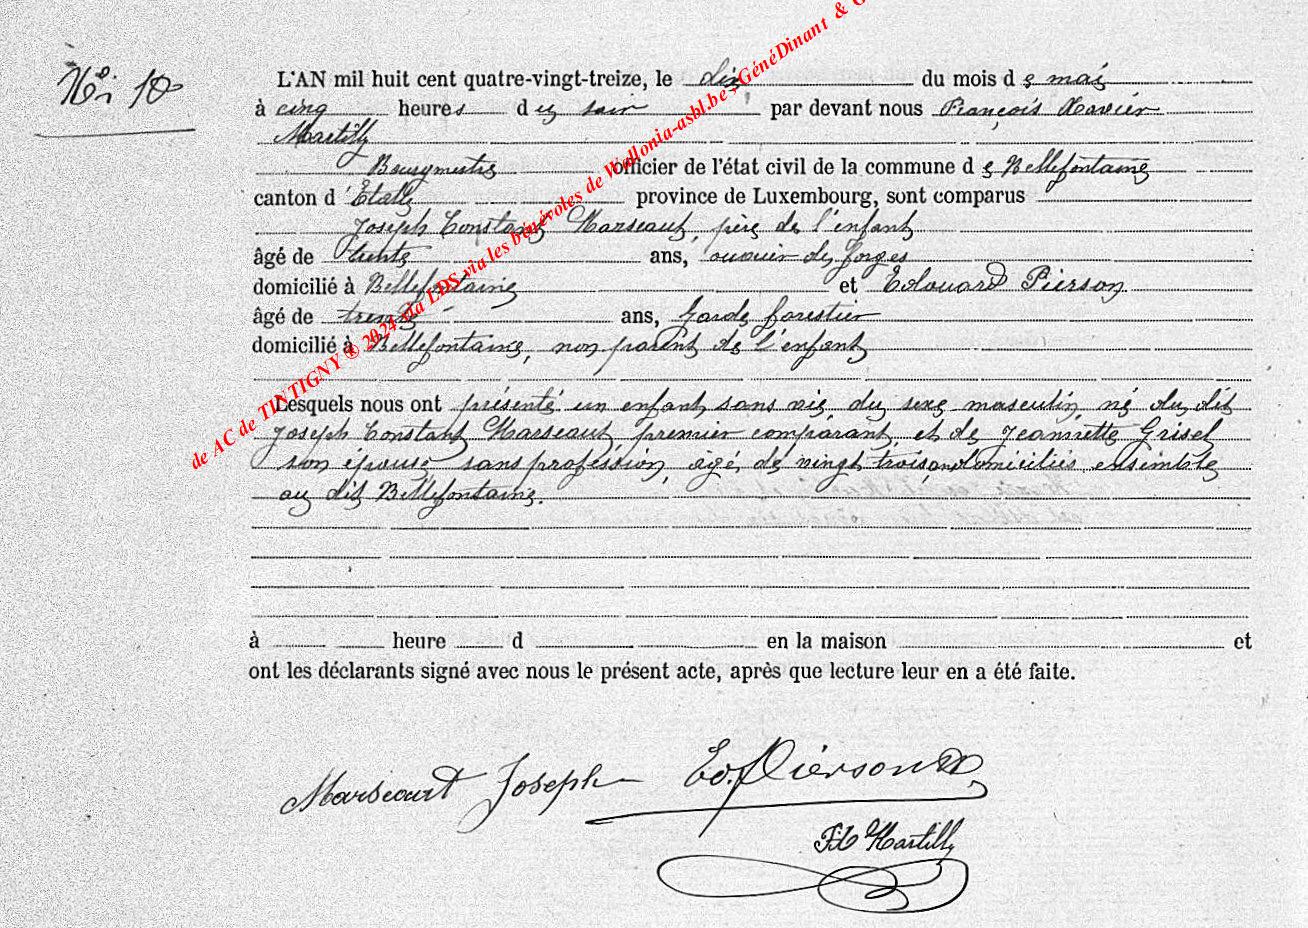 N° 10
L'AN mil huit cent quatre-vingt-treize, le dix du mois de mai
à cinq heures du soir par devant nous François Xavier
Martilly
Bourgmestre officier de l'état civil de la commune de Bellefontaine
canton d'Etalle province de Luxembourg, sont comparus
Joseph Constant Marseaut, père de l'enfant
âgé de trente ans, ouvrier des forges
domicilié à Bellefontaine et Edouard Pierson.
âgé de trente ans, Garde forestier
domicilié à Bellefontaine, non parent de l'enfant
Lesquels nous ont présenté un enfant sans vie du sexe masculin, né du dit
Joseph Constant Marseaut, premier comparant, et de Jeannette Grisel
son épouse sans profession, âgé de vingt trois ans domiciliés ensemble
au dit Bellefontaine.
à heure d en la maison et
ont les déclarants signé avec nous le présent acte, après que lecture leur en a été faite.
Marseaut Joseph Ed. Pierson
FX Martilly
de AC de TINTIGNY ® 2024 via LDS via les bénévoles de Wallonia-asbl.be, GénéDinant & G